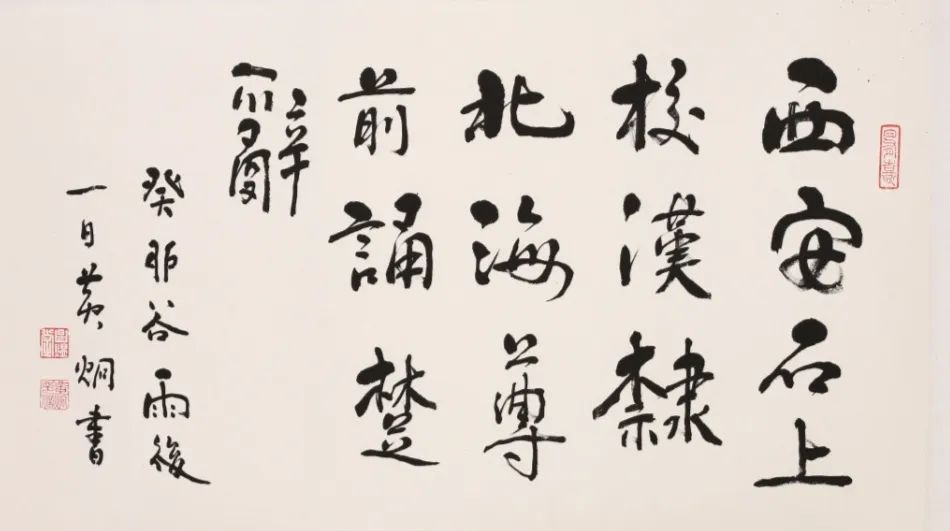 西安石上
校漢隸
北海尊
前誦楚
辭
癸卯谷雨後
一日黄炯書